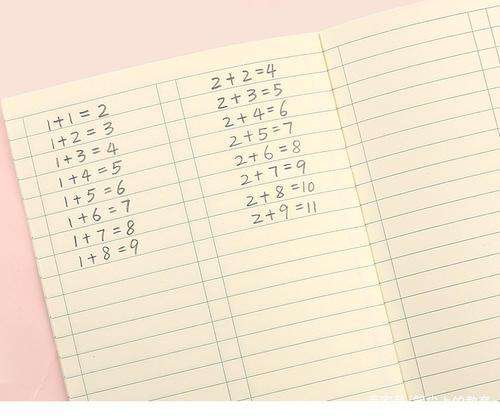 1+1=2
1+2=3
1+3=4
1+4=5
1+5=6
1+6=7
1+7=8
1+8=9
2+2=4
2+3=5
2+4=6
2+5=7
2+6=8
2+7=9
2+8=10
2+9=11